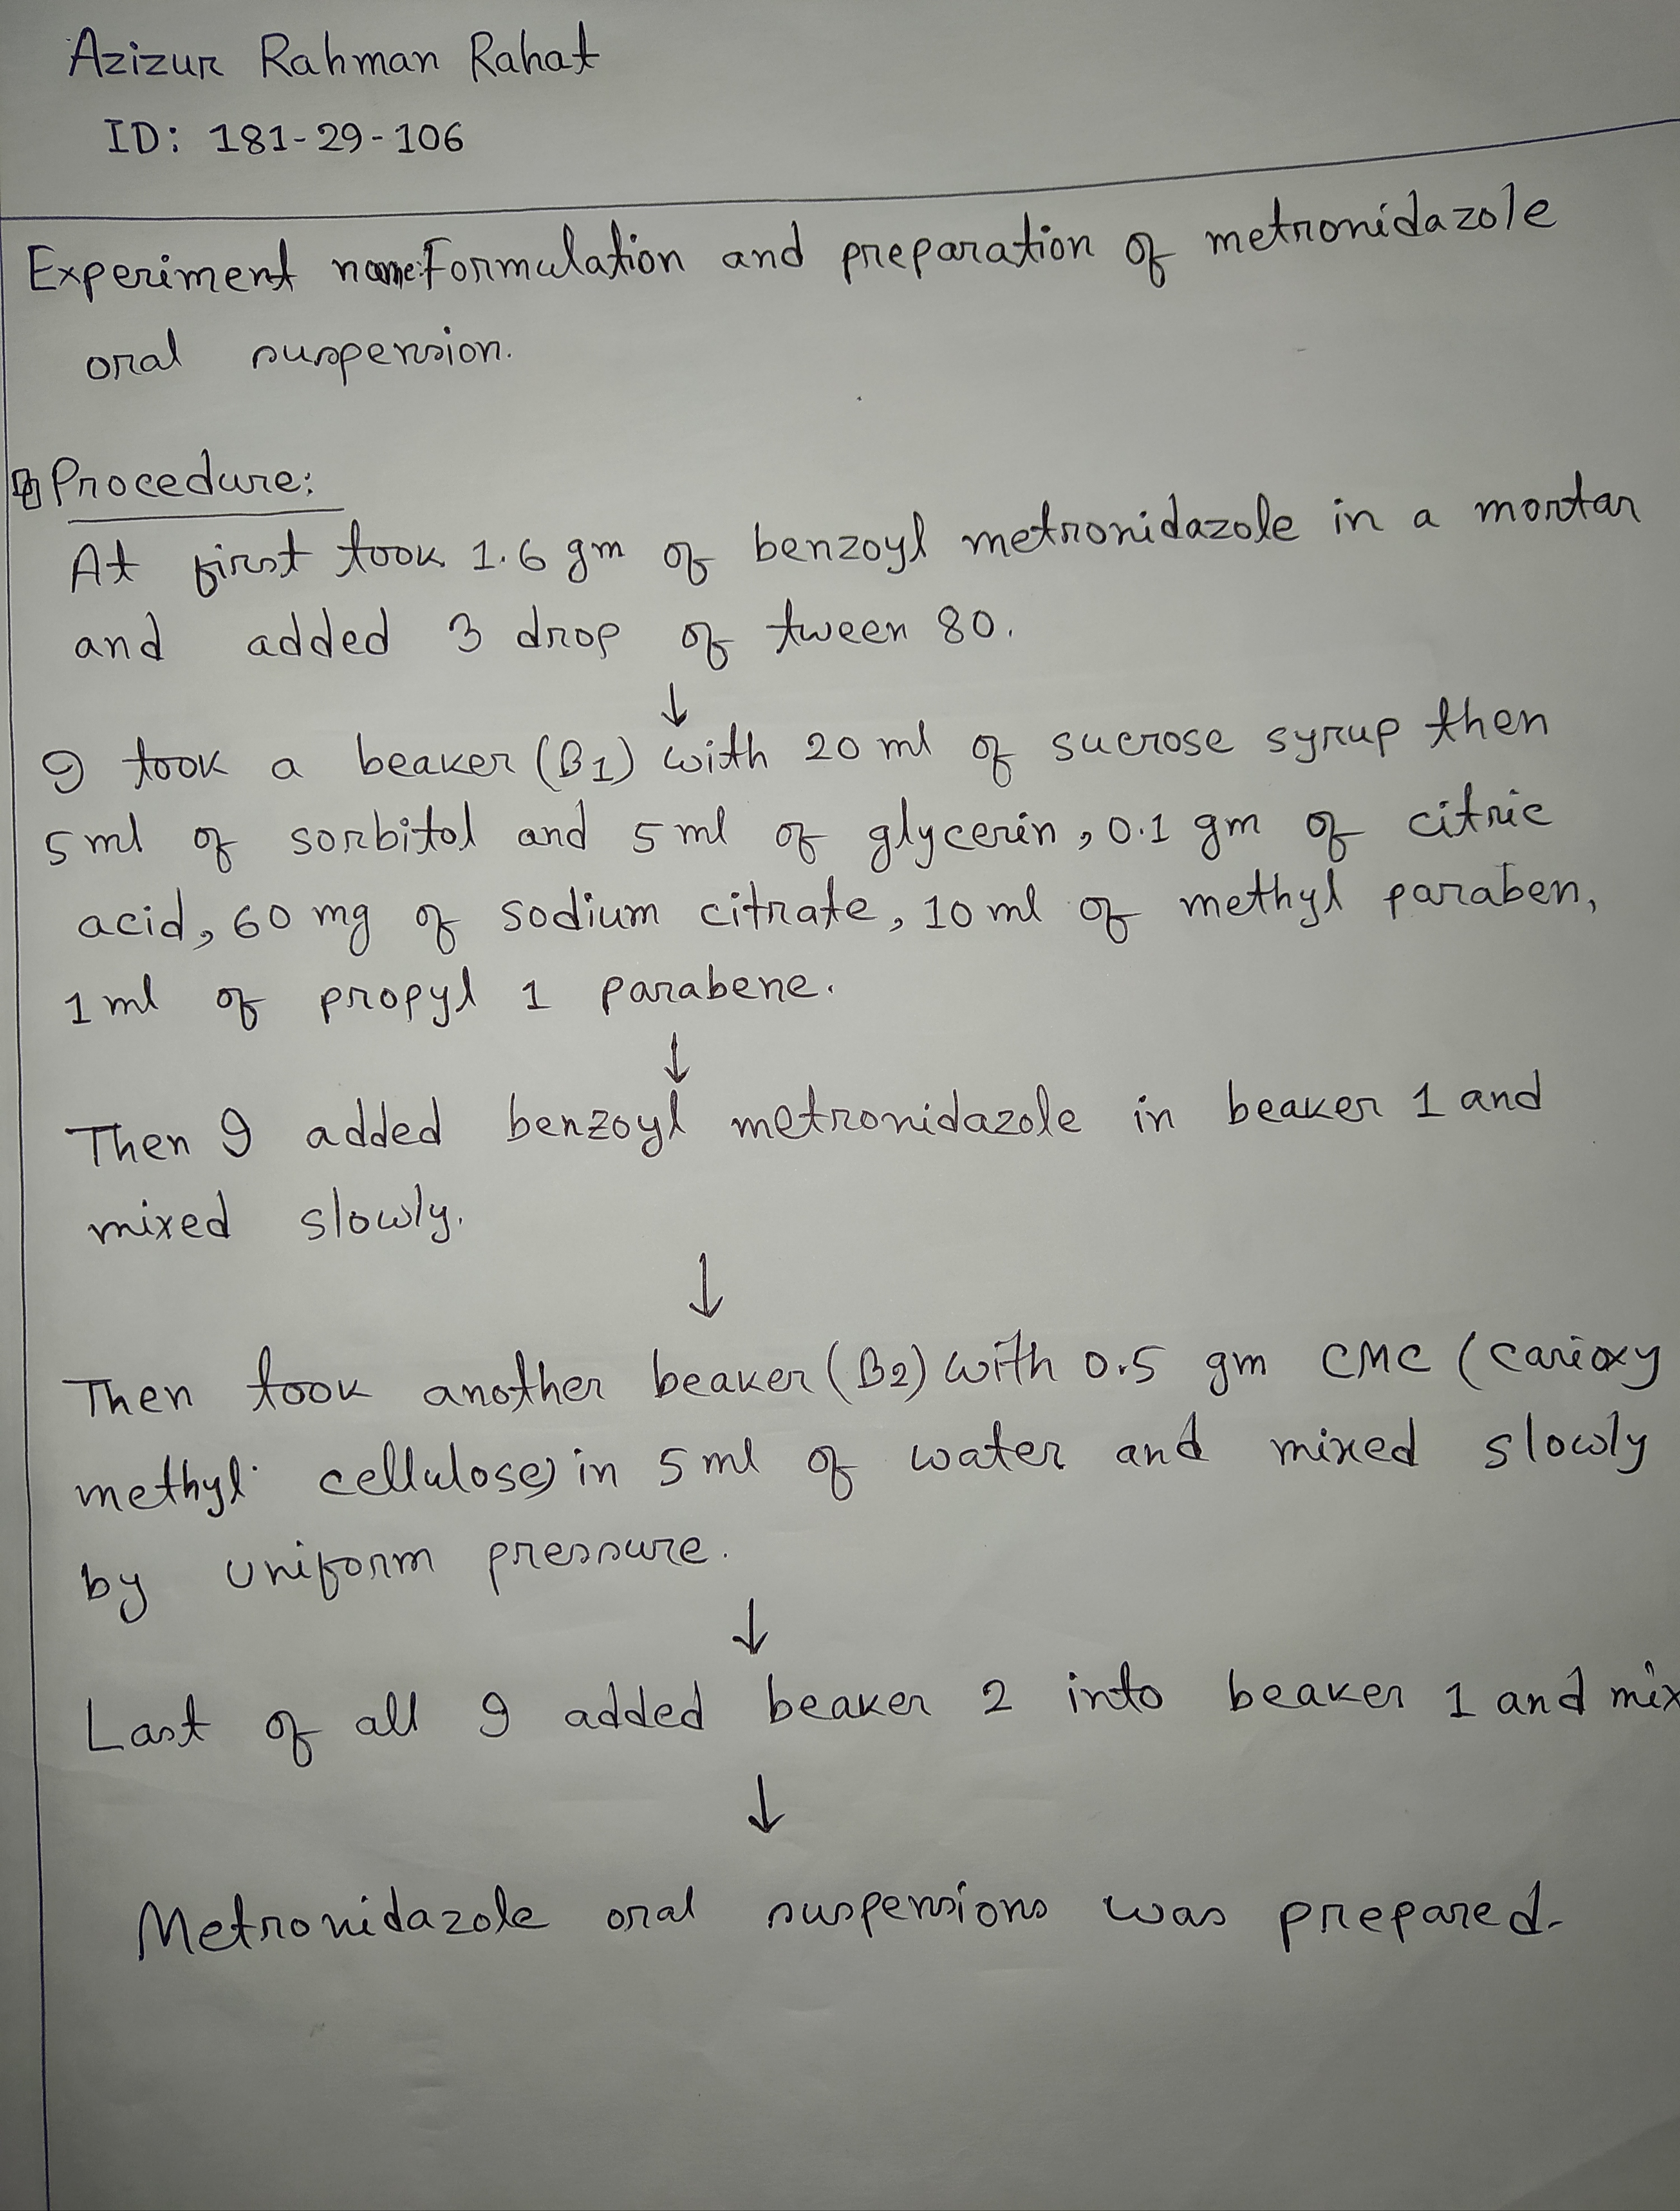 Azizur Rahman Rahat
ID: 181-29-106
Experiment name: Formulation and preparation of metronidazole
oral suspension.
Procedure:
At first took 1.6 gm of benzoyl metronidazole in a mortar
and added 3 drop of tween 80.
↓
I took a beaker (B1) with 20 ml of sucrose syrup then
5 ml of sorbitol and 5 ml of glycerin, 0.1 gm of citric
acid, 60 mg of sodium citrate, 10 ml of methyl paraben,
1 ml of propyl 1 parabene.
↓
Then I added benzoyl metronidazole in beaker 1 and
mixed slowly.
↓
Then took another beaker (B2) with 0.5 gm CMC (
methyl cellulose) in 5 ml of water and mixed slowly
by uniform pressure.
↓
Last of all I added beaker 2 into beaker 1 and mix
↓
Metronidazole oral suspensions was prepared.